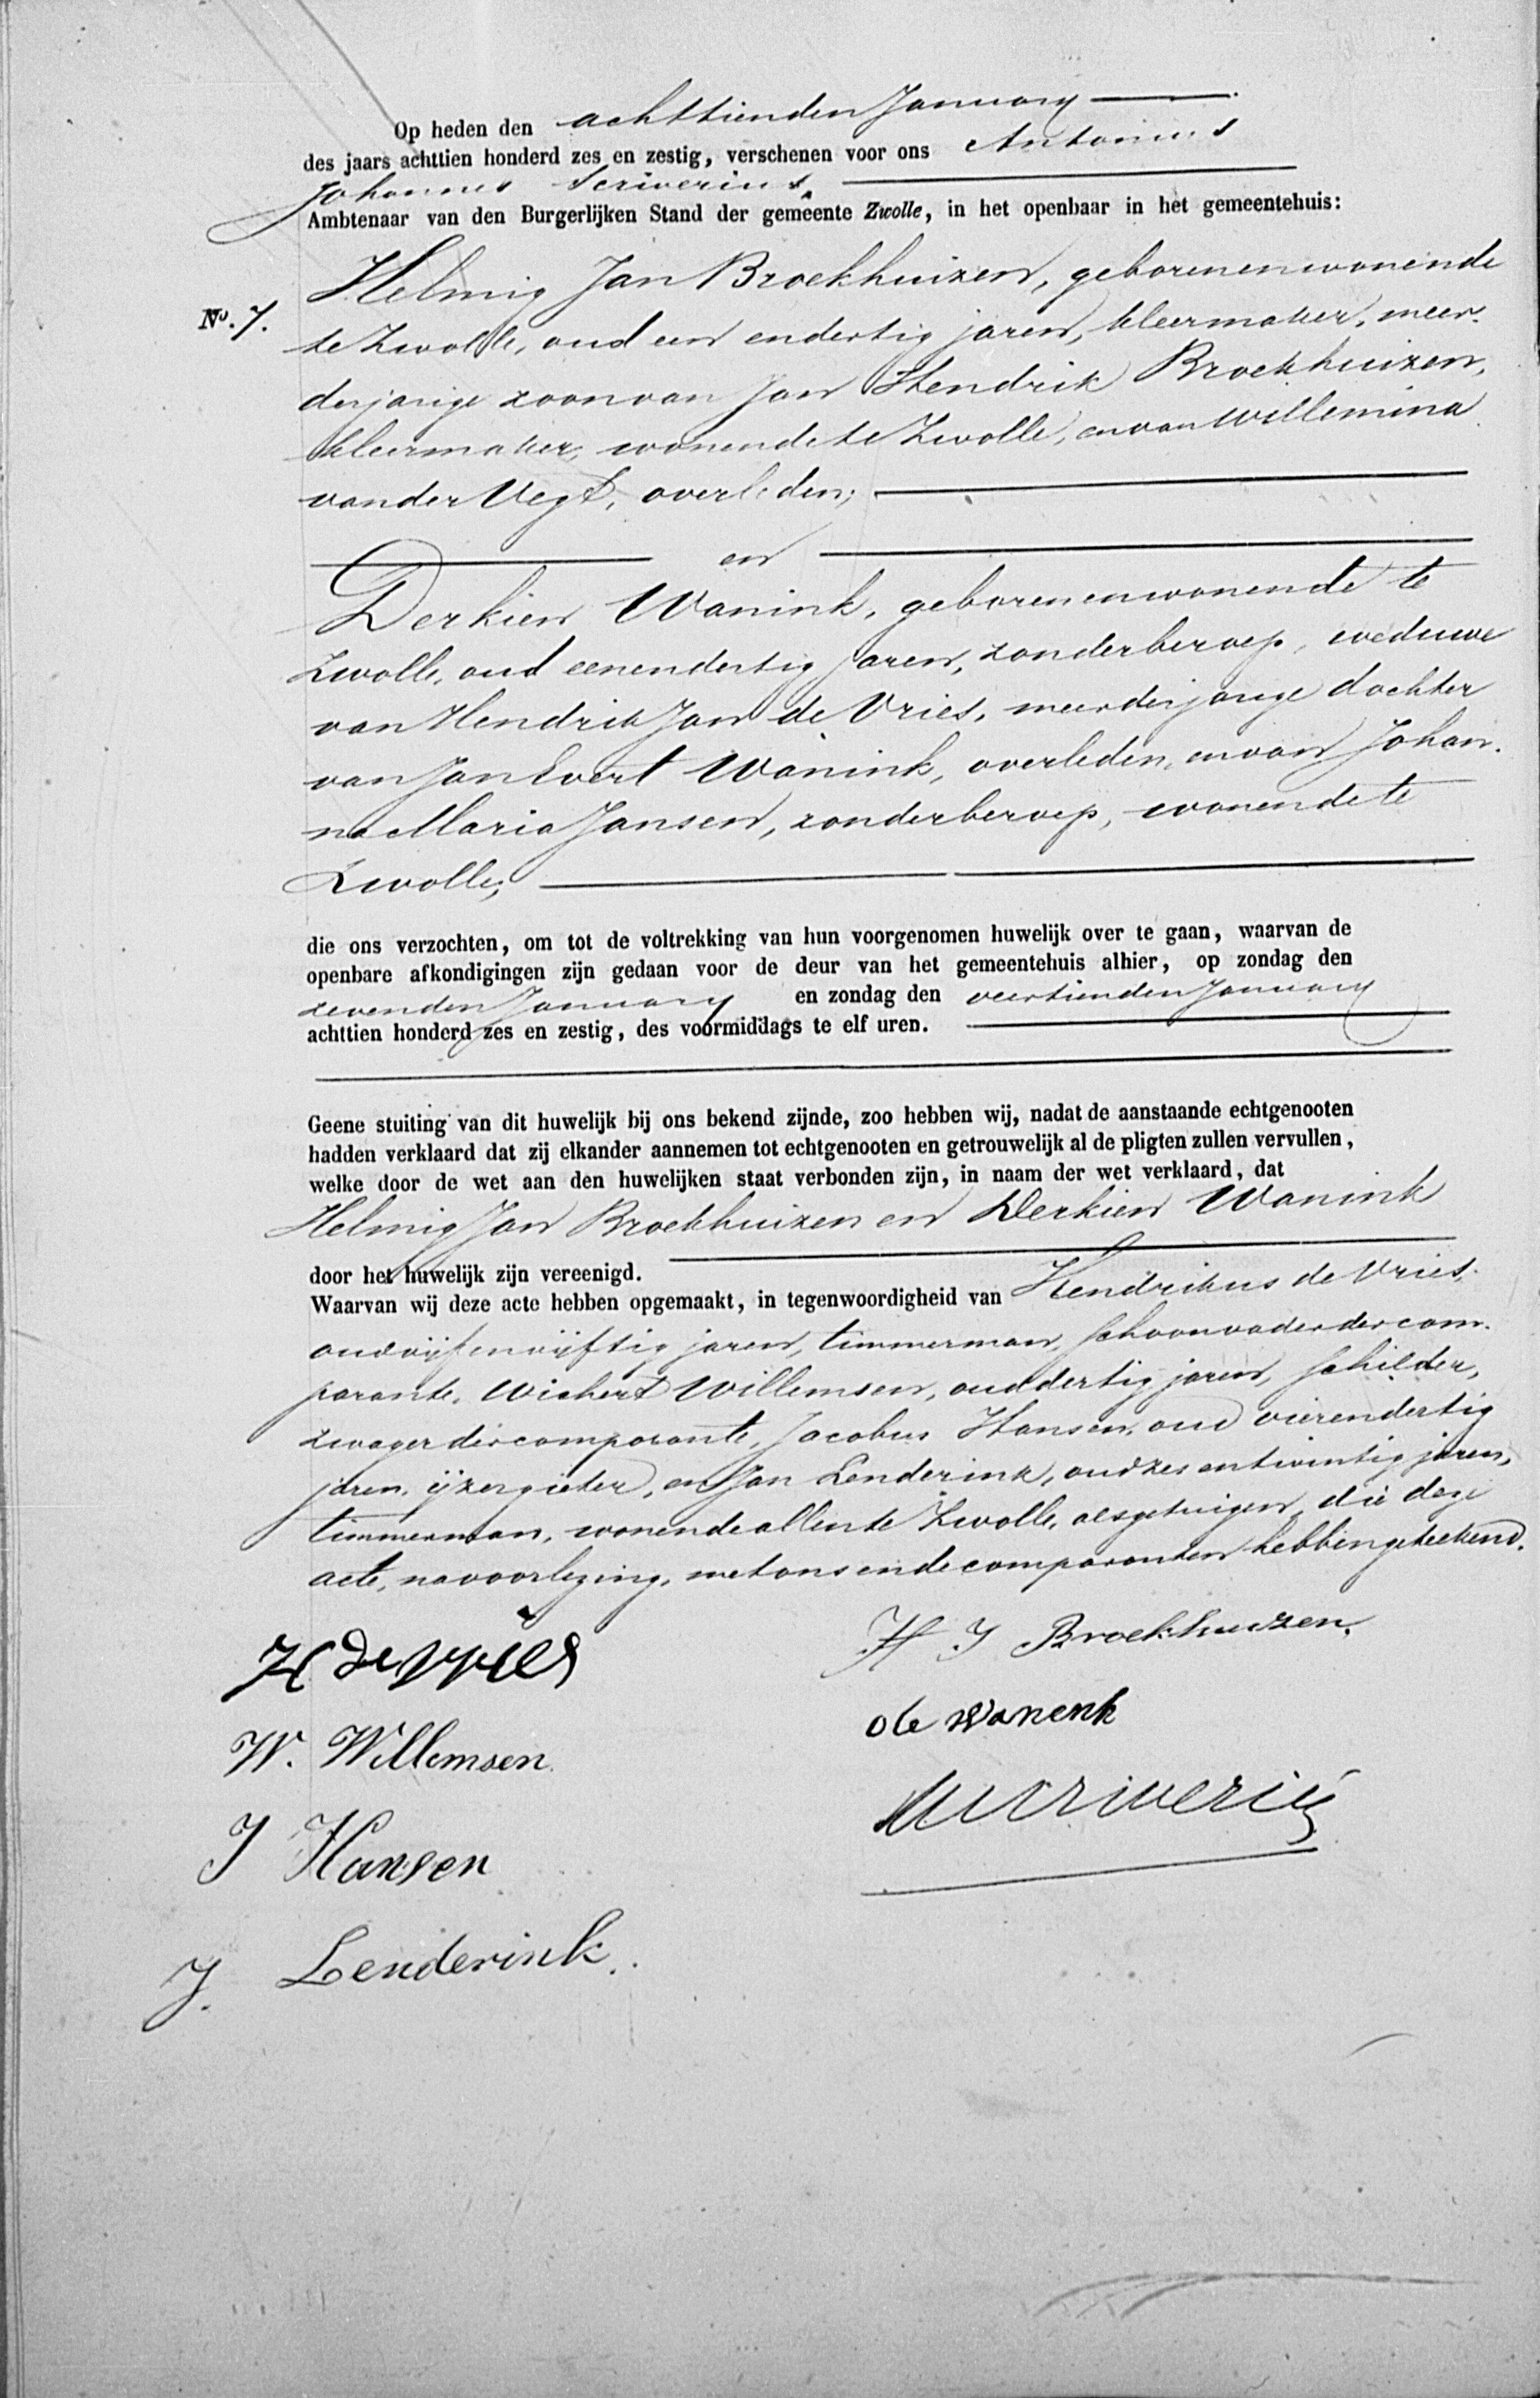 Op heden den achttienden January
des jaars achttien honderd zes en zestig, verschenen voor ons Antonius
Johannes Scriverius,
Ambtenaar van den Burgerlijken Stand der gemeente Zwolle, in het openbaar in het gemeentehuis:
No. 7.
Helmig Jan Broekhuizen, geboren en wonende
te Zwolle, oud een en dertig jaren, kleermaker, meer-
derjarige zoon van Jan Hendrik Broekhuizen,
kleermaker, wonende te Zwolle, en van Willemina
van der Vegt, overleden;
en
Derkien Wanink, geboren en wonende te
Zwolle, oud een en dertig jaren, zonder beroep, weduwe
van Hendrik Jan de Vries, meerderjarige dochter
van Jan Evert Wanink, overleden, en van Johan-
na Maria Jansen, zonder beroep, wonende te
Zwolle;
die ons verzochten, om tot de voltrekking van hun voorgenomen huwelijk over te gaan, waarvan de
openbare afkondigingen zijn gedaan voor de deur van het gemeentehuis alhier, op zondag den
zevenden January en zondag den veertienden January
achttien honderd zes en zestig, des voormiddags te elf uren.
Geene stuiting van dit huwelijk bij ons bekend zijnde, zoo hebben wij, nadat de aanstaande echtgenooten
hadden verklaard dat zij elkander aannemen tot echtgenooten en getrouwelijk al de pligten zullen vervullen,
welke door de wet aan den huwelijken staat verbonden zijn, in naam der wet verklaard, dat
Helmig Jan Broekhuizen en Derkien Wanink
door het huwelijk zijn vereenigd.
Waarvan wij deze acte hebben opgemaakt, in tegenwoordigheid van Hendrikus de Vries,
oud vijf en vijftig jaren, timmerman, schoonvader der com-
parante, Wichert Willemsen, oud dertig jaren, schilder,
zwager der comparante, Jacobus Hansen, oud vier en dertig
jaren, ijzergieter, en Jan Lenderink, oud zes en twintig jaren,
timmerman, wonende allen te Zwolle, als getuigen, die deze
acte, na voorlezing, met ons en de comparanten hebben geteekend.
H de Vries
H J Broekhuizen.
W. Willemsen
de wanenk
J Hansen
J. Lenderink.